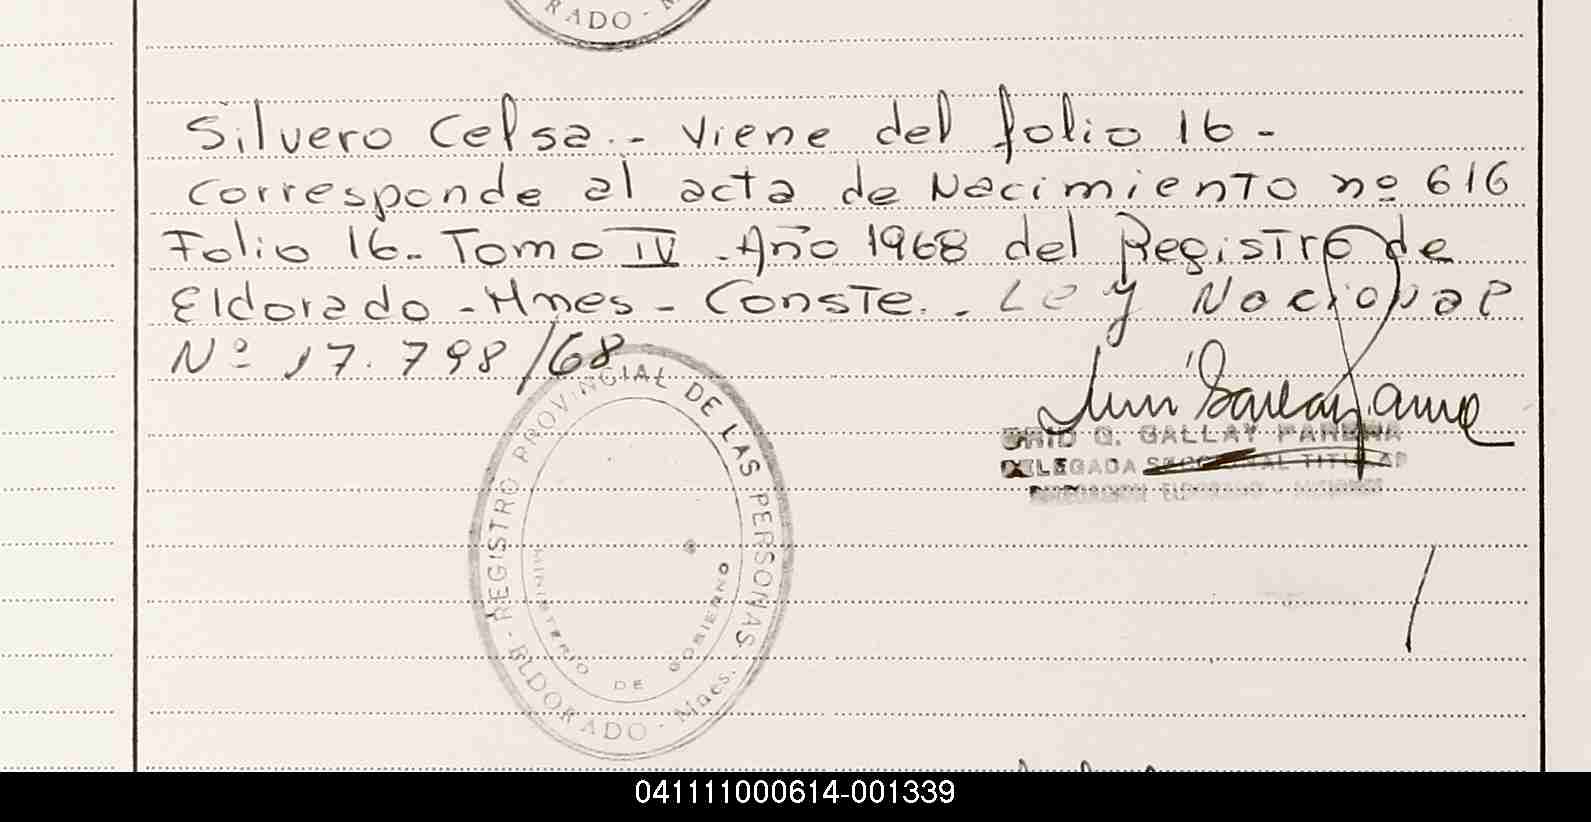 RADO - M
Silvero Celsa.- Viene del folio 16 -
Corresponde al acta de Nacimiento nº 616
Folio 16- Tomo IV - Año 1968 del Registro de
Eldorado - Mnes - Conste. - Ley Nacional
Nº 17.798/68
REGISTRO PROVINCIAL DE LAS PERSONAS
- ELDORADO - Mnes. -
MINISTERIO DE GOBIERNO
G. GALLAY PARERA
DELEGADA SECCIONAL TITULAR
DELEGACION ELDORADO - MISIONES
041111000614-001339